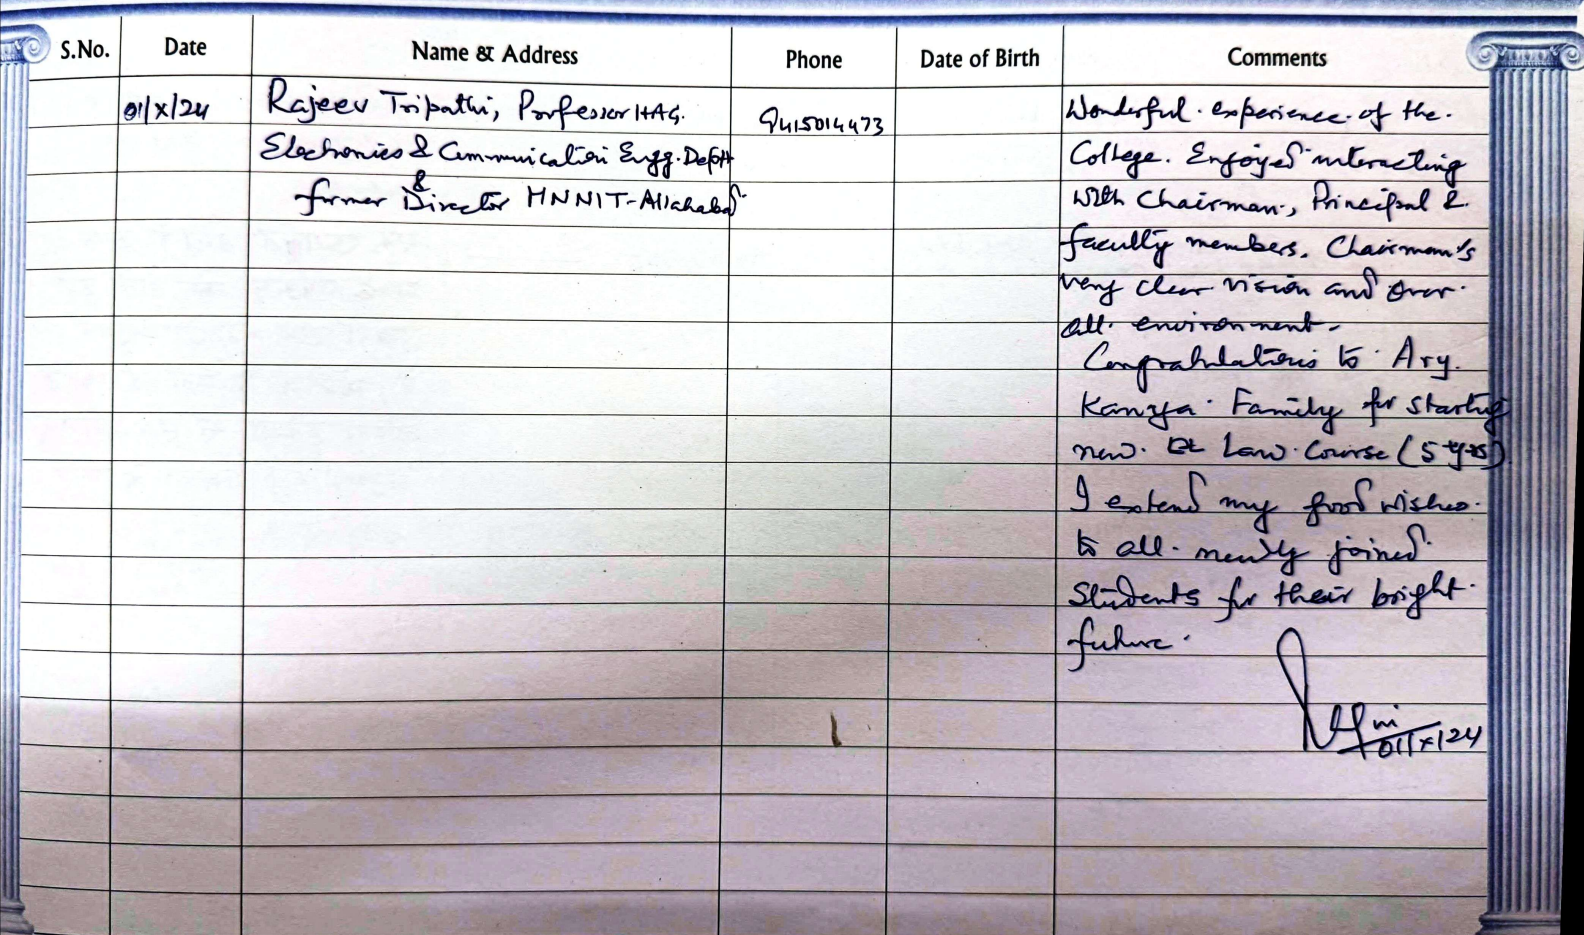 S.No. Date Name & Address Phone Date of Birth Comments
01/X/24 Rajeev Tripathi, Professor HAG. 9415014473
Electronics & Communication Engg. Deptt
&
former Director MNNIT-Allahabad
Wonderful experience of the
College. Enjoyed interacting
with Chairman, Principal &
faculty members. Chairman's
very clear vision and over
all environment.
Congratulations to Ary
Kanya Family for starting
new Law Course (5 yrs)
I extend my good wishes
to all newly joined
students for their bright
future.
01/X/24